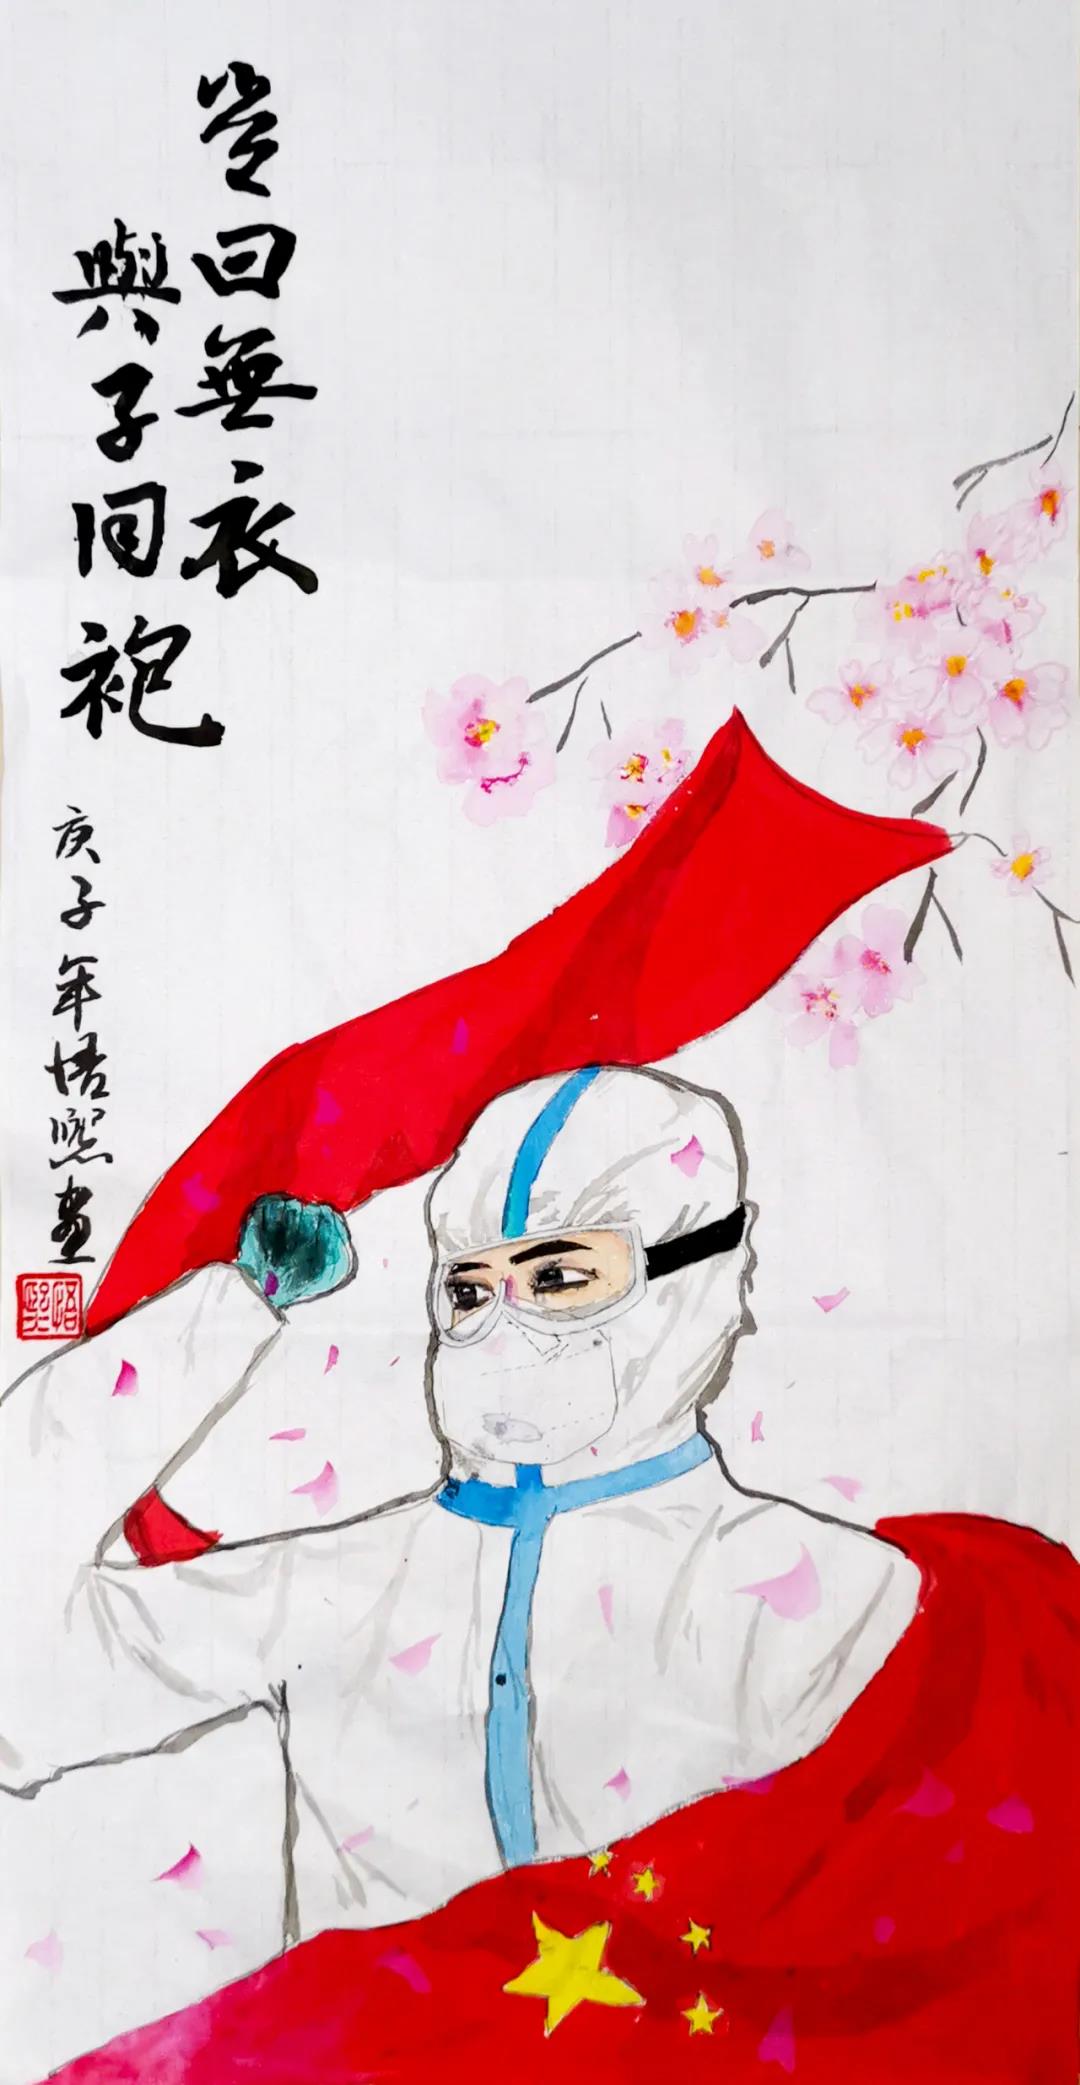 岂曰無衣
與子同袍
庚子年悟熙畫
悟熙